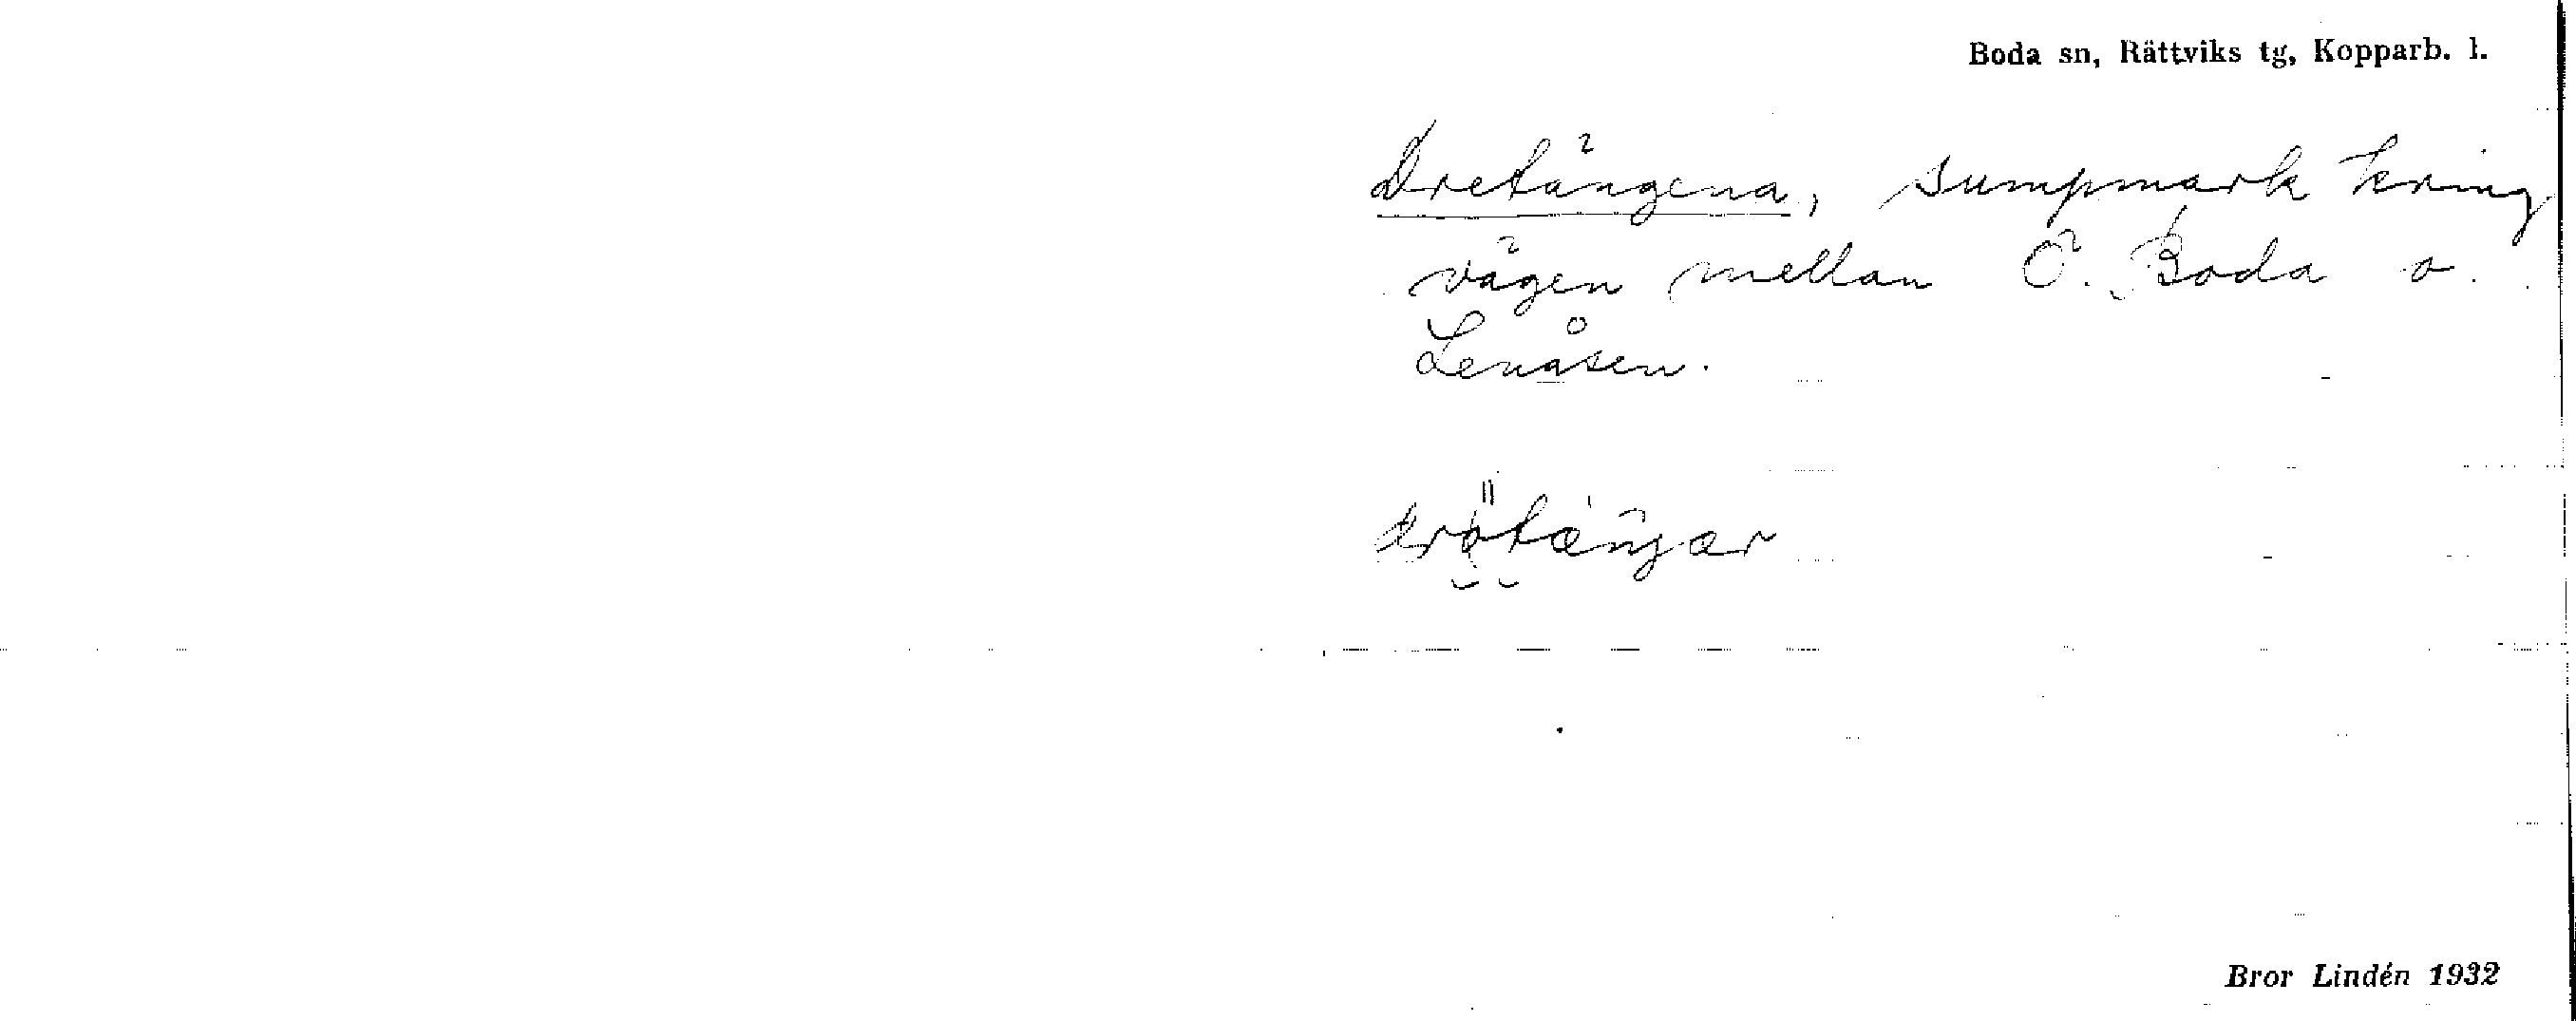 Boda sn, Rättviks tg, Kopparb. l.
Dretängena, sumpmark kring
vägen mellan Ö. Boda o.
Lenåsen.
Bror Lindén 1932